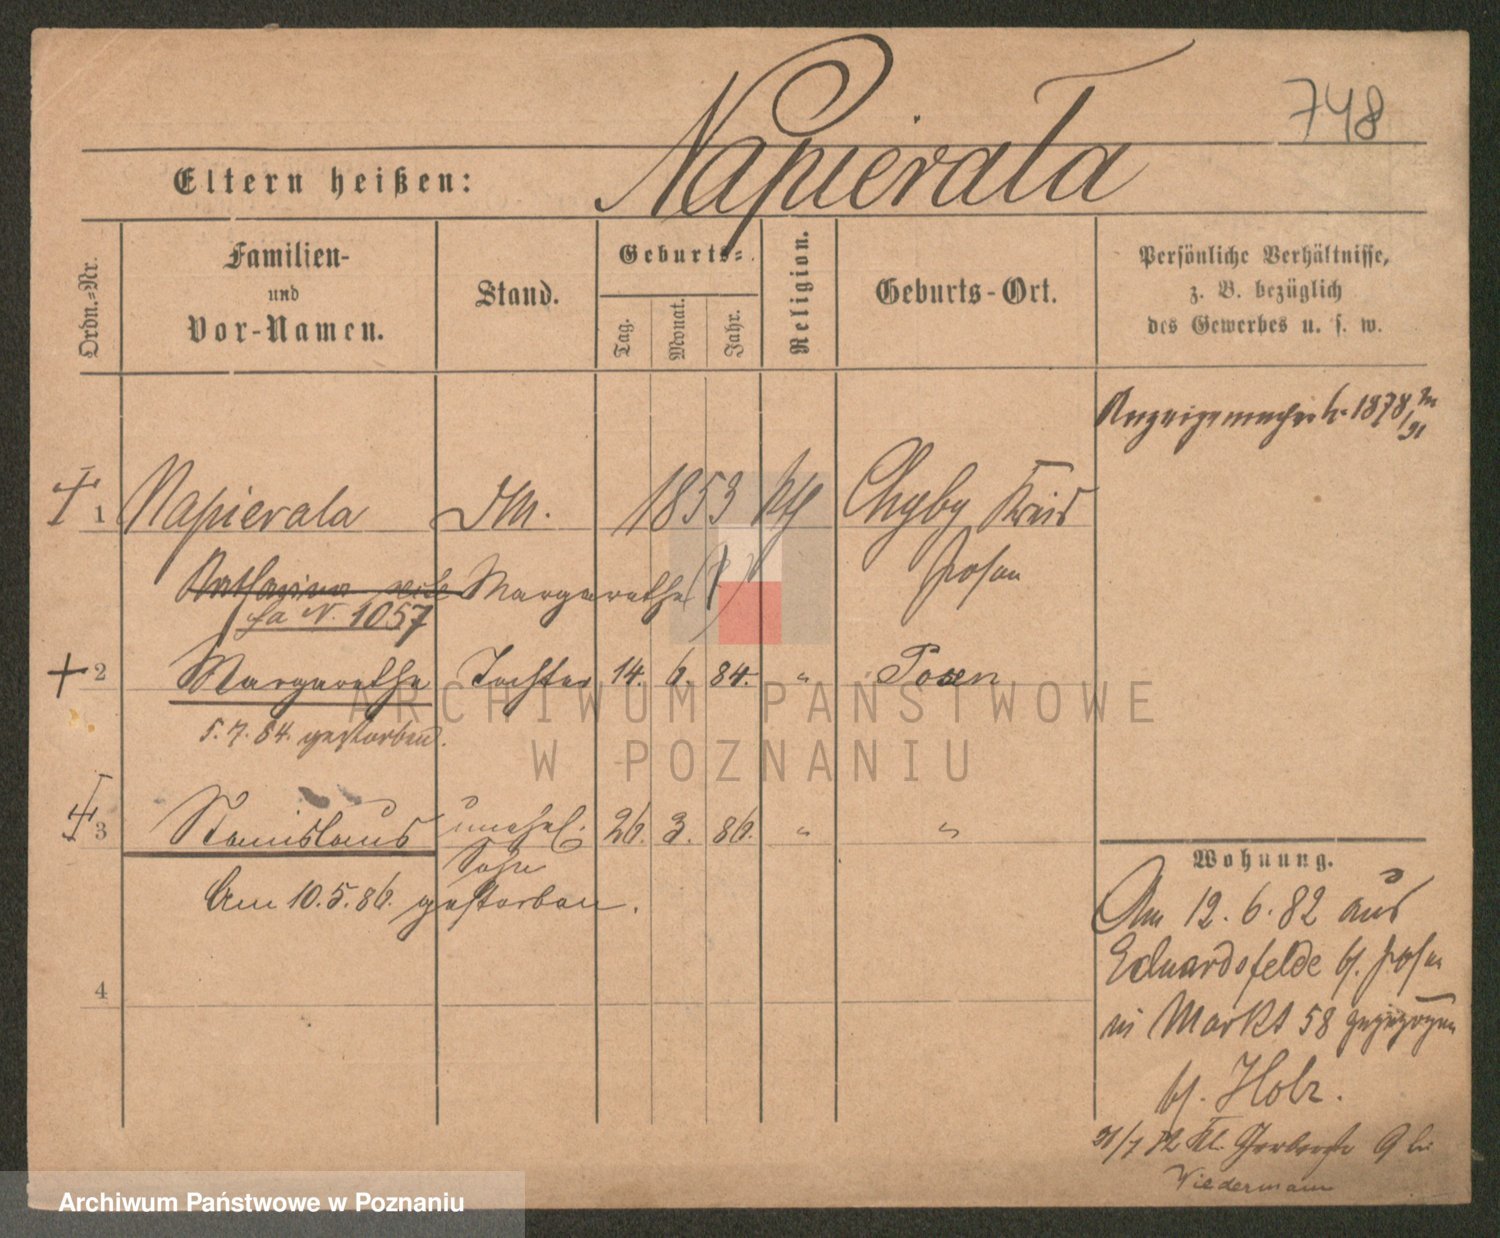 748
Napierała
Eltern heißen:
Ordn.=Nr.
Familien-
und
Vor-Namen.
Stand.
Geburts=
Tag.
Monat.
Jahr.
Religion.
Geburts-Ort.
Persönliche Verhältnisse,
z. B. bezüglich
des Gewerbes u. s. w.
1878
1 Napierala DM. 1853 Chyby Kreis
Posen
Margarethe
N. 1057
2 Margarethe Tochter 14. 6. 84. " Posen
5.7.84. gestorben.
3 Stanislaus unehel. 26. 3. 86. " "
Sohn
Am 10.5.86. gestorben.
4
Wohnung.
Am 12.6.82 aus
Eduardsfelde b/. Posen
in Markt 58 gezogen
b/. Holz.
Kl. Gerberstr 9 bei
Wiedermann
ARCHIWUM PAŃSTWOWE
W POZNANIU
Archiwum Państwowe w Poznaniu